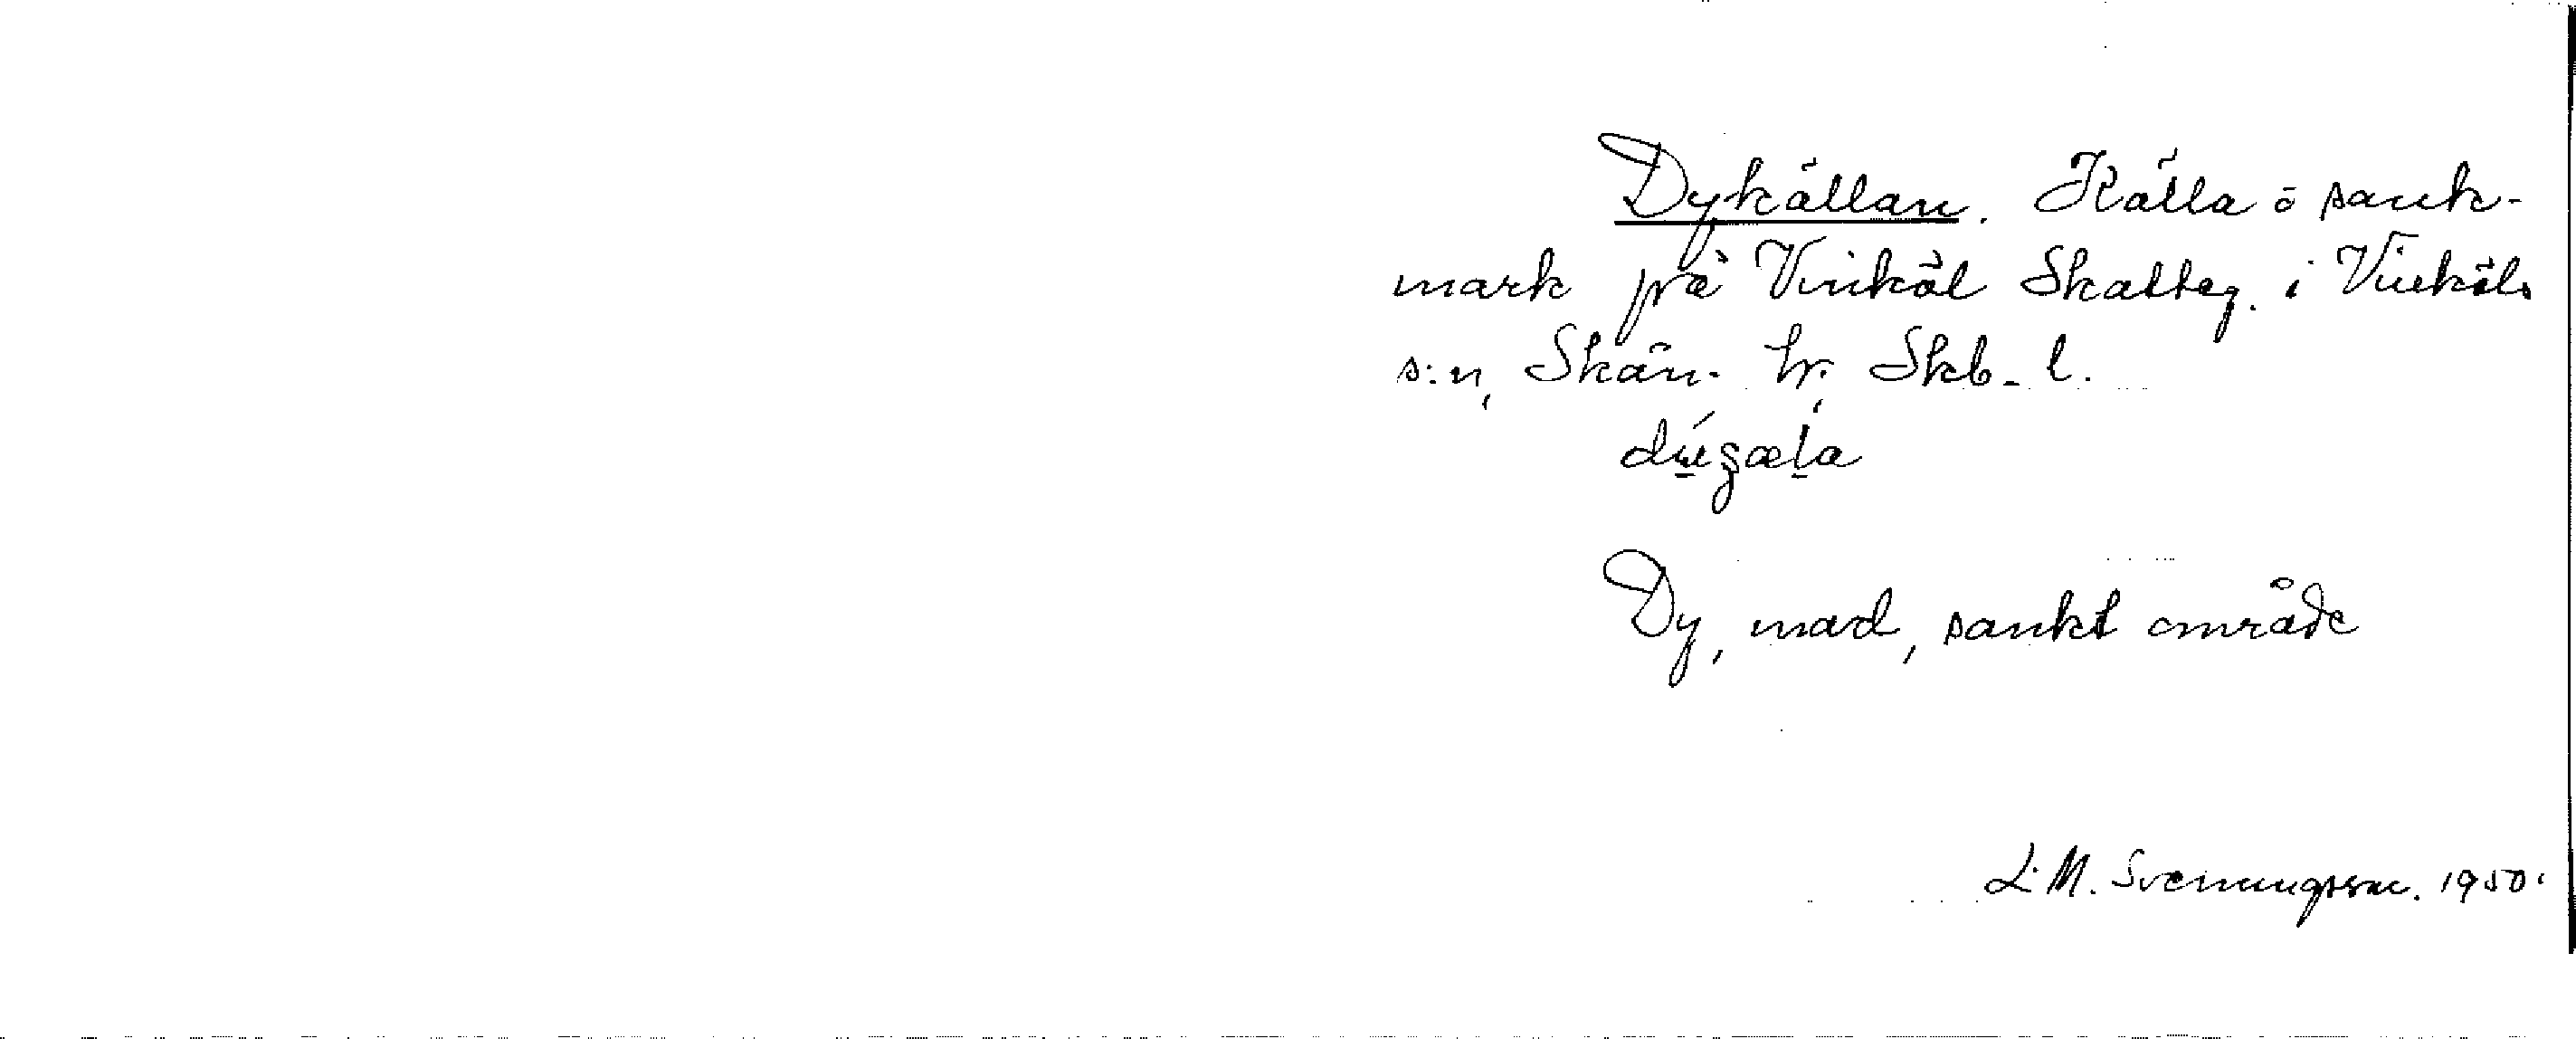 Dykällan. Källa o sank-
mark på Vinköl Skatteg. i Vinköls
s:n, Skån. hr, Skb. l.
Dy, mad, sankt område
L. M. Svenungsson. 1950.